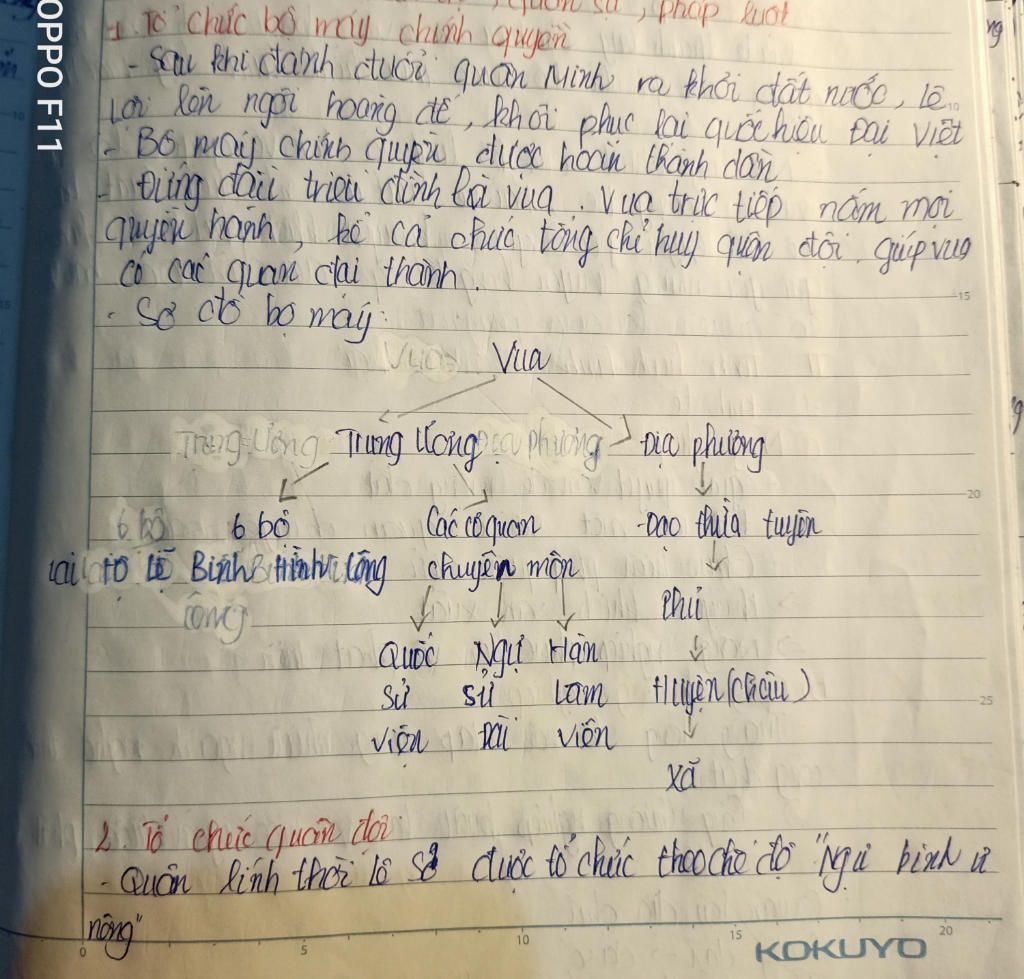 , quân sự, pháp luật
1. Tổ chức bộ máy chính quyền
- Sau khi đánh đuổi quân Minh ra khỏi đất nước, Lê
Lợi lên ngôi hoàng đế, khôi phục lại quốc hiệu Đại Việt
- Bộ máy chính quyền được hoàn thành dần
- Đứng đầu triều đình là vua. Vua trực tiếp nắm mọi
quyền hành, kể cả chức tổng chỉ huy quân đội. giúp vua
có các quan đại thành.
- Sơ đồ bộ máy:
Vua Vua
Trung Ương Trung Ương Địa phương Địa phương
6 bộ 6 bộ Các cơ quan Đạo thừa tuyên
Lại Hộ Lễ Binh Hình Công chuyên môn
Công Phủ
Quốc Ngự Hàn
Sử sử Lam Huyện (Châu)
viện Đài viện
Xã
2. Tổ chức quân đội
- Quân lính thời lê sơ được tổ chức theo chế độ "Ngụ binh ư
nông"
OPPO F11
10
15
20
25
0 5 10 15 20
KOKUYO